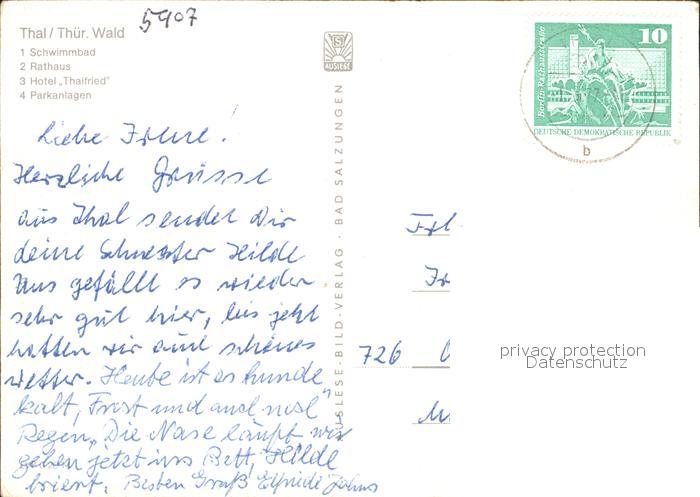 5907
Thal / Thür. Wald
1 Schwimmbad
2 Rathaus
3 Hotel „Thalfried"
4 Parkanlagen
AUSLESE
AUSLESE-BILD-VERLAG · BAD SALZUNGEN
Berlin-Rathausstraße
10
DEUTSCHE DEMOKRATISCHE REPUBLIK
b
Liebe Irene!
Herzliche Grüsse
aus Thal sendet Dir
deine Schwester Hilde
Uns gefällt es wieder
sehr gut hier, bis jetzt
hatten wir auch schönes
Wetter. Heute ist es hunde
kalt, Frost und auch noch
Regen, Die Nase läuft wir
gehen jetzt ins Bett, Hilde
Besten Gruß Elfriede
Frl
726
privacy protection
Datenschutz